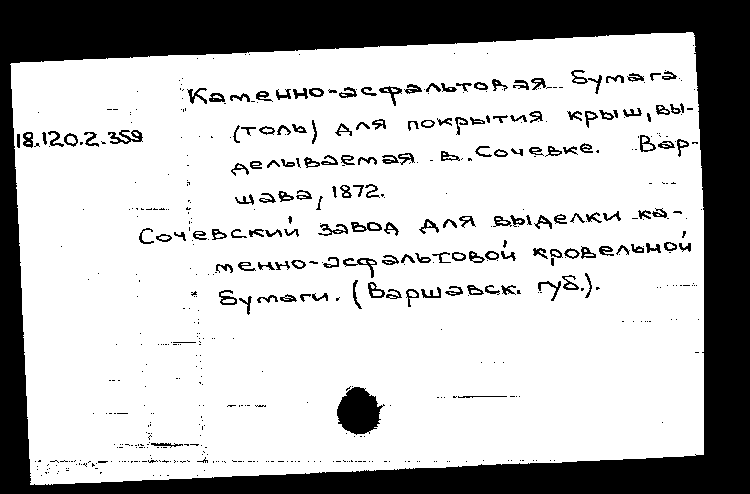 Каменно-асфальтовая бумага
18.120.2.359
(толь) для покрытия крыш, вы-
делываемая в Сочевке. Вар-
шава, 1872.
Сочевский завод для выделки ка-
менно-асфальтовой кровельной
бумаги. (Варшавск. губ.).